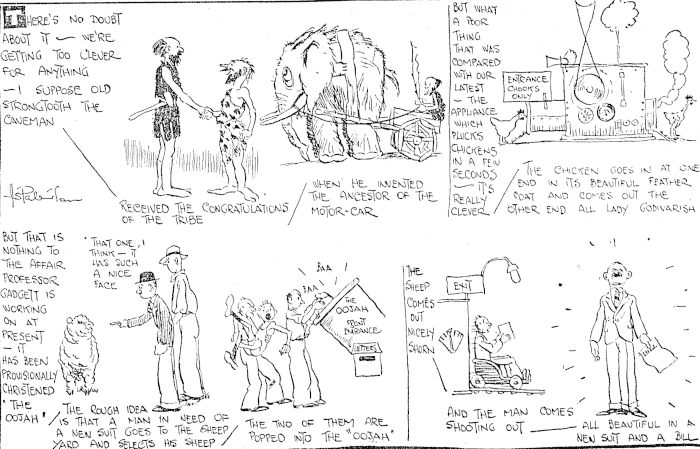 THERE'S NO DOUBT
ABOUT IT — WE'RE
GETTING TOO CLEVER
FOR ANYTHING
— I SUPPOSE OLD
STRONGTOOTH THE
CAVEMAN
RECEIVED THE CONGRATULATIONS
OF THE TRIBE
WHEN HE INVENTED
THE ANCESTOR OF THE
MOTOR-CAR
BUT WHAT
A POOR
THING
THAT WAS
COMPARED
WITH OUR
LATEST
— THE
APPLIANCE
WHICH
PLUCKS
CHICKENS
IN A FEW
SECONDS
— IT'S
REALLY
CLEVER
ENTRANCE
CHOOKS
ONLY
THE CHICKEN GOES IN AT ONE
END IN ITS BEAUTIFUL FEATHER
COAT AND COMES OUT THE
OTHER END ALL LADY GODIVARISH
BUT THAT IS
NOTHING TO
THE AFFAIR
PROFESSOR
GADGETT IS
WORKING
ON AT
PRESENT
— IT
HAS BEEN
PROVISIONALLY
CHRISTENED
"THE
OOJAH"
"THAT ONE, I
THINK — IT
HAS SUCH
A NICE
FACE
THE ROUGH IDEA
IS THAT A MAN IN NEED OF
A NEW SUIT GOES TO THE SHEEP
YARD AND SELECTS HIS SHEEP
BAA
BAA
THE
OOJAH
FRONT
ENTRANCE
LETTERS
THE TWO OF THEM ARE
POPPED INTO THE "OOJAH"
THE
SHEEP
COMES
OUT
NICELY
SHORN
EXIT
AND THE MAN COMES
SHOOTING OUT
ALL BEAUTIFUL IN A
NEW SUIT AND A BILL